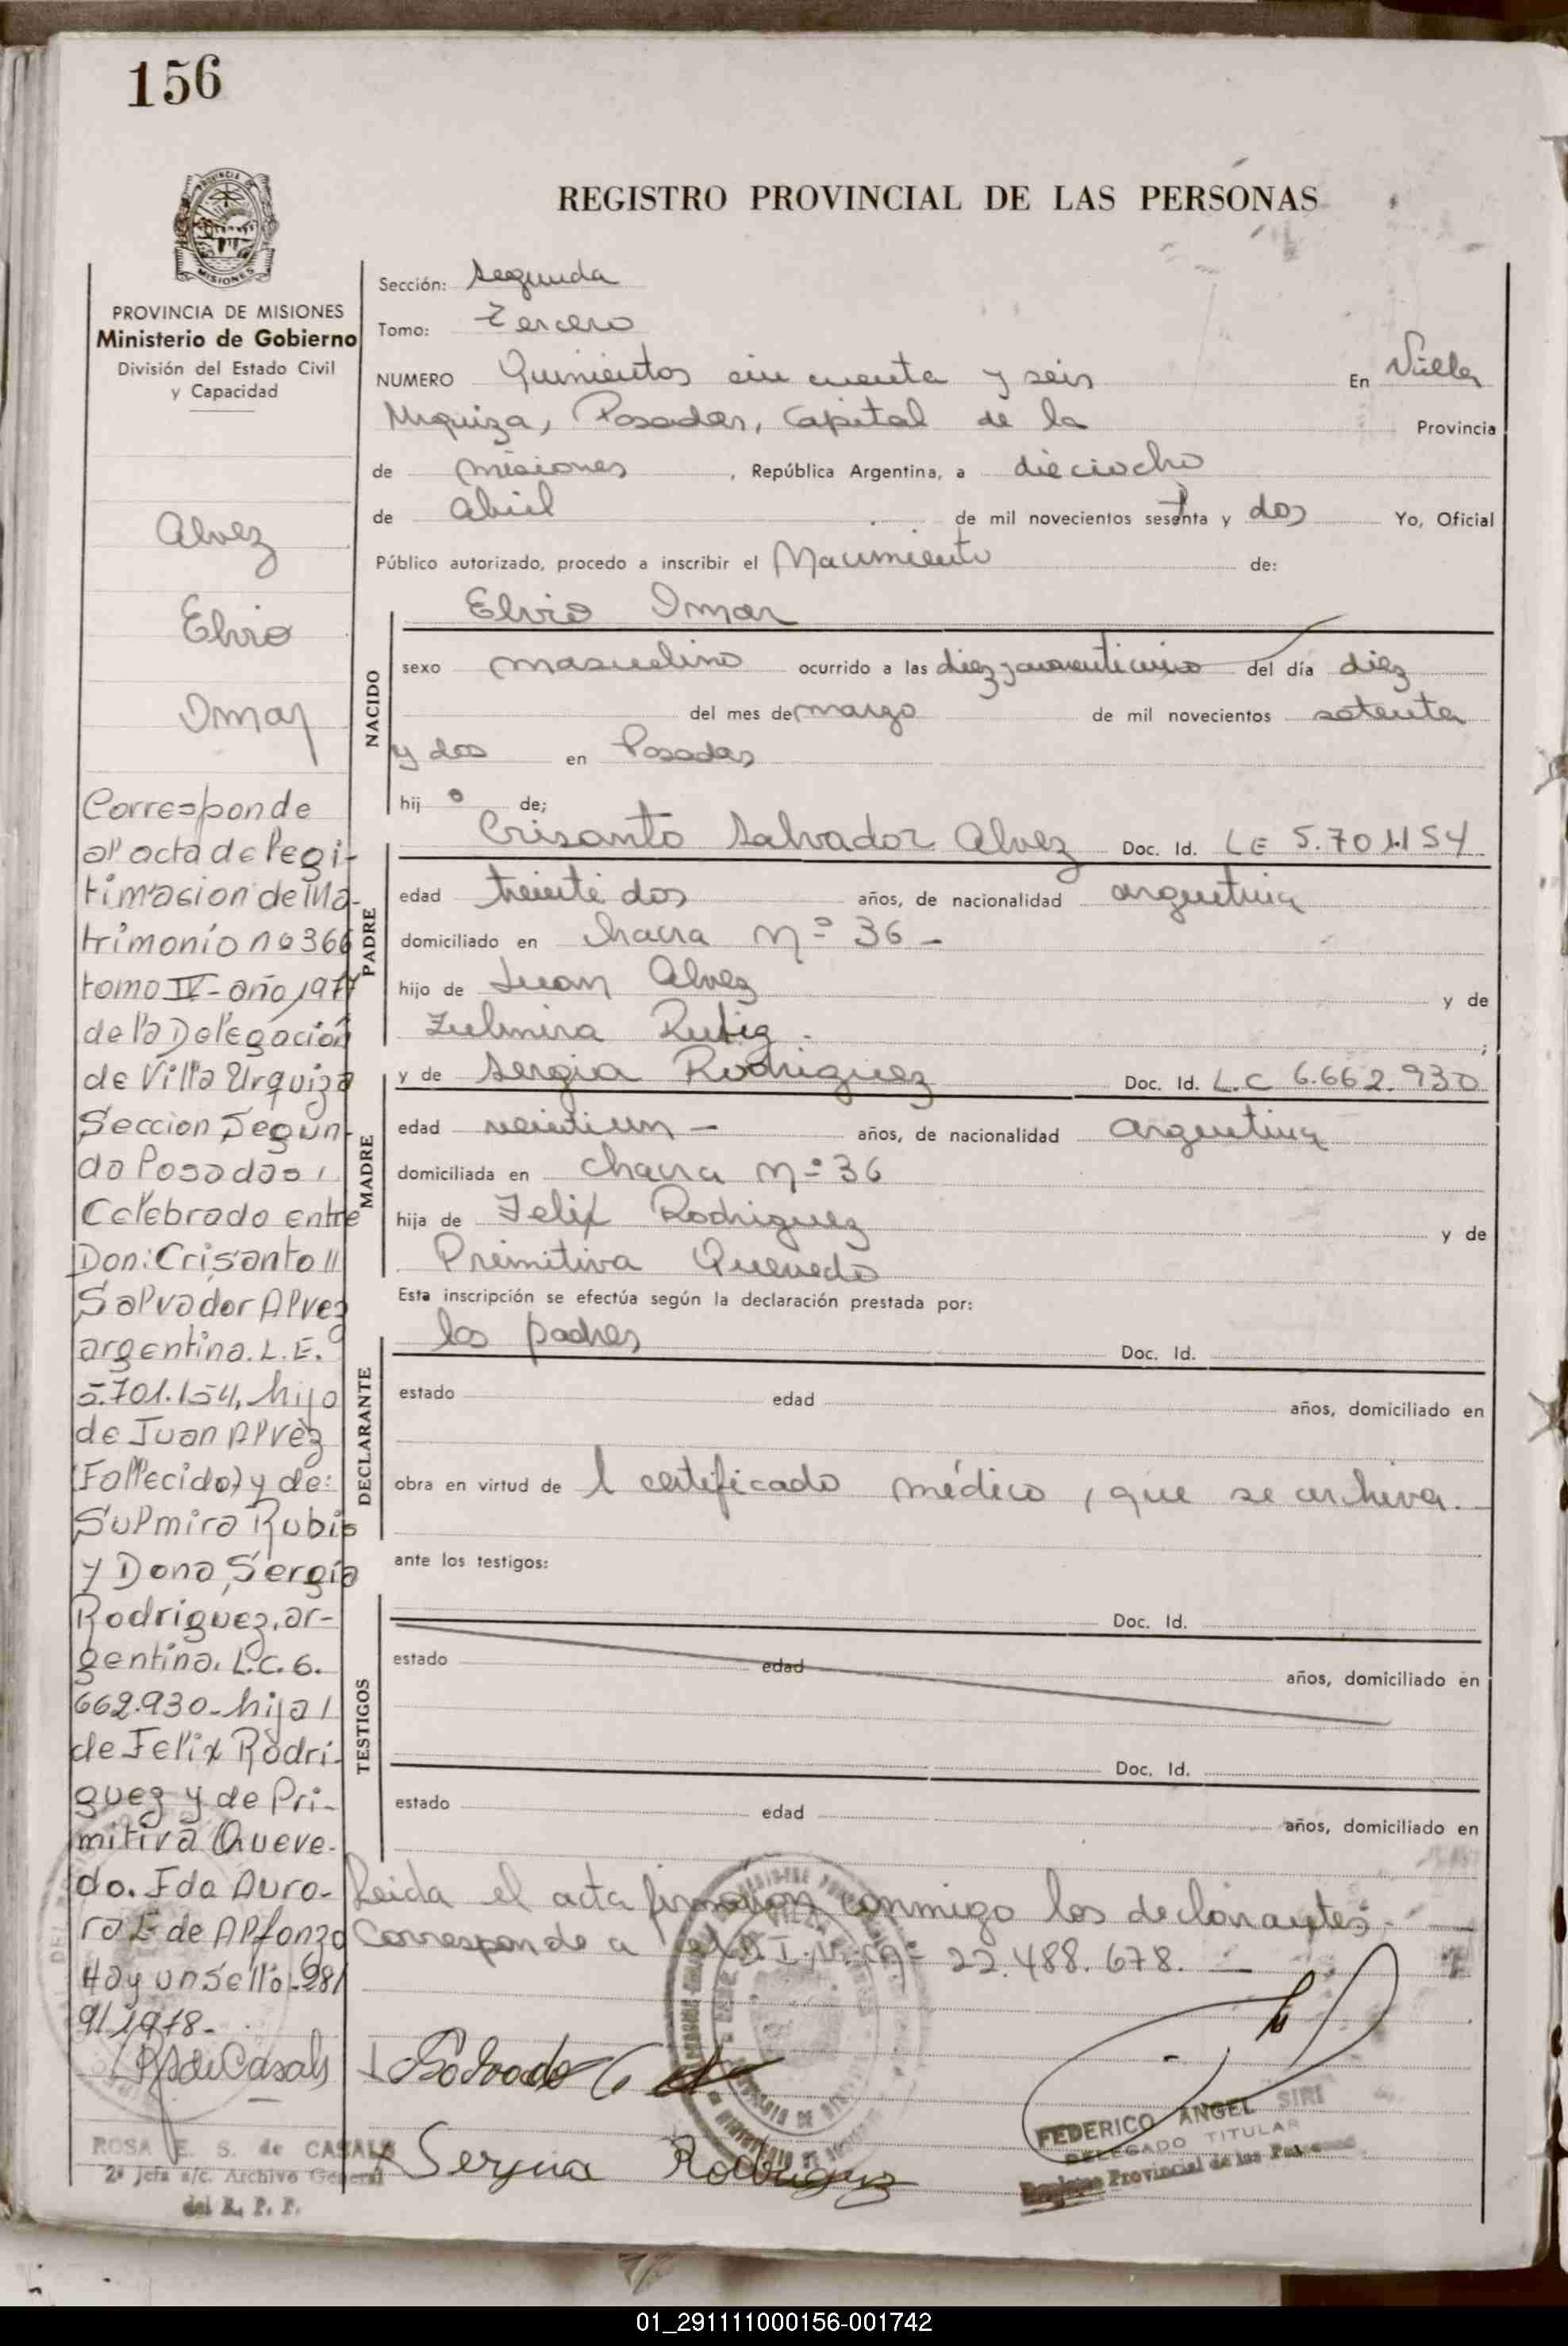 156
REGISTRO PROVINCIAL DE LAS PERSONAS
MISIONES
PROVINCIA DE MISIONES
Ministerio de Gobierno
División del Estado Civil
y Capacidad
Alvez
Elvio
Omar
Corresponde
al acta de legi-
timacion de Ma-
trimonio no 366
tomo IV - año 1977
de la Delegación
de Villa Urquiza
Seccion Segun-
da Posadas,
Celebrado entre
Don: Crisanto
Salvador Alvez
argentino. L.E.
5.701.154, hijo
de Juan Alvez
(Fallecido) y de:
Sulmira Rubio
y Dona, Sergia
Rodriguez, ar-
gentina. L.C. 6.
662.930 - hija
de Felix Rodri-
guez y de Pri-
mitiva Queve-
do. Fdo Auro-
ra E de Alfonzo
Hay un sello -
ROSA E. S. de CASALS
2ª Jefa a/c. Archivo General
del R. P. P.
Sección: Segunda
Tomo: Tercero
NUMERO Quinientos cincuenta y seis En Villa
Urquiza, Posadas, Capital de la Provincia
de Misiones, República Argentina, a dieciocho
de Abril de mil novecientos setenta y dos Yo, Oficial
Público autorizado, procedo a inscribir el Nacimiento de:
Elvio Omar
NACIDO
sexo masculino ocurrido a las diez y cuarenticinco del día diez
del mes de marzo de mil novecientos setenta
y dos en Posadas
hijo de;
PADRE
Crisanto Salvador Alvez Doc. Id. LE 5.701.154
edad treinta dos años, de nacionalidad argentina
domiciliado en Chacra Nº 36 -
hijo de Juan Alvez y de
Zulmira ;
MADRE
y de Sergia Rodriguez Doc. Id. L.C 6.662.930
edad veintiun - años, de nacionalidad argentina
domiciliada en Chacra Nº 36
hija de Felix Rodriguez y de
Primitiva Quevedo
Esta inscripción se efectúa según la declaración prestada por:
DECLARANTE
los padres Doc. Id.
estado edad años, domiciliado en
obra en virtud del certificado médico, que se archiva. -
ante los testigos:
TESTIGOS
Doc. Id.
estado edad años, domiciliado en
Doc. Id.
estado edad años, domiciliado en
Leida el acta firmaron conmigo los declarantes. -
Corresponde a el D.N.I. Nº 22.488.678. -
Sergia Rodriguez
FEDERICO ANGEL SIRI
DELEGADO TITULAR
Registro Provincial de las Personas
01_291111000156-001742